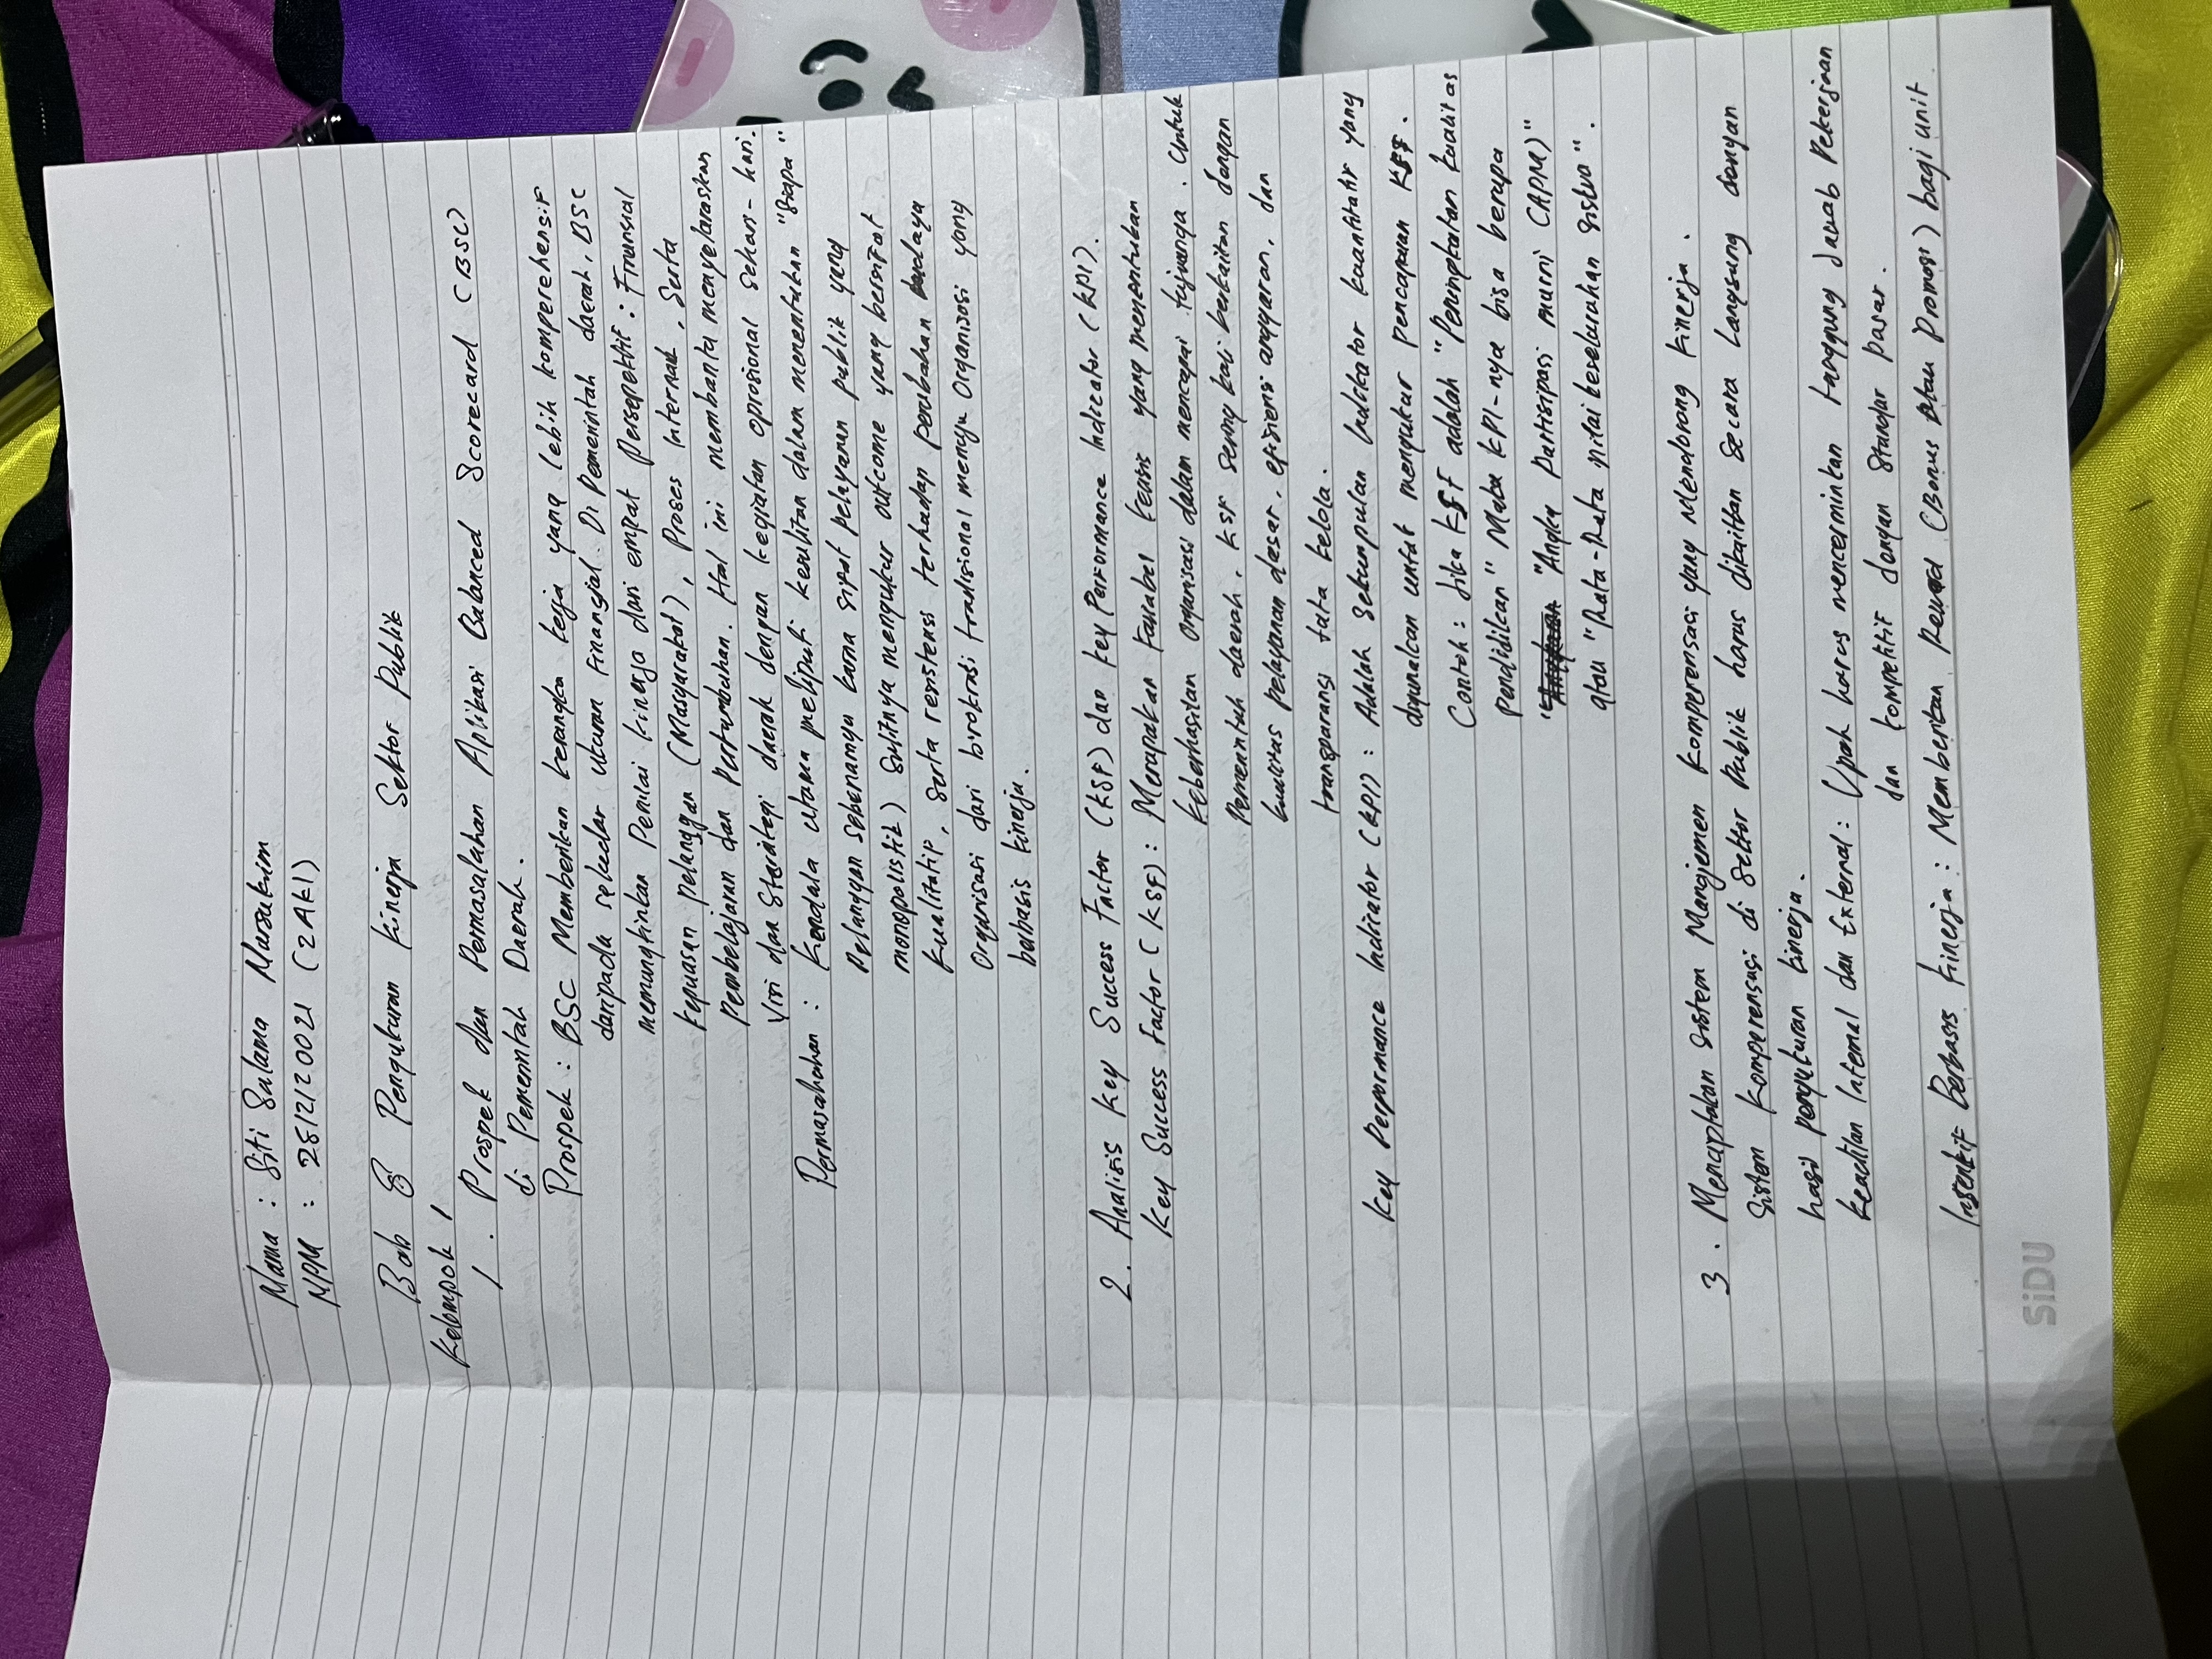 Nama : Siti Salama Marsukim
NPM : 28/2/20021 (2AK1)
Bab 8 Pengukuran kinerja Sektor Publik
Kelompok 1
1. Prospek dan Permasalahan Aplikasi Balanced Scorecard (BSC)
di Pemerintah Daerah.
Prospek : BSC Memberikan kerangka kerja yang lebih komperehensif
daripada sekedar ukuran Finangial. Di Pemerintah daerah, BSC
memungkinkan Penilai kinerja dari empat Persepektif : Finansial
kepuasan pelanggan (Masyarakat), Proses Internal, Serta
Pembelajaran dan Pertumbuhan. Hal ini membantu menyelaraskan
Visi dan Starategi daerah dengan kegiatan oprosional sehari-hari.
Permasalahan : Kendala utama meliputi kesulitan dalam menentukan "Siapa"
Pelanggan sebenarnya karna sifat pelayanan publik yang
monopolistik) Sulitnya mengukur outcome yang bersifat
kualitatif, Serta resistensi terhadap perubahan budaya
Organisasi dari birokrasi tradisional menuju Organisasi yang
berbasis kinerja.
2. Analisis Key Success Factor (KSF) dan Key Performance Indicator (KPI).
Key Success Factor (KSF) : Merupakan Variabel kunci yang menentukan
keberhasilan Organisasi dalam mencapai tujuannya. Untuk
Pemerintah daerah, KSF sering kali berkaitan dengan
kualitas pelayanan dasar, efisiensi anggaran, dan
transparansi tata kelola.
Key Perpormance Indicator (KPI) : Adalah Sekumpulan Indikator kuantitatif yang
digunakan untuk mengukur pencapaian KSF.
Contoh : Jika KSF adalah "Peningkatan kualitas
Pendidikan" Maka KPI-nya bisa berupa
"Angka Partisipasi murni (APM)"
atau "Rata-Rata nilai kelulusan siswa".
3. Menciptakan Sistem Manajemen Kompensasi yang Mendorong kinerja.
Sistem Kompensasi di Sektor Publik harus dikaitkan Secara Langsung dengan
hasil pengukuran kinerja.
Keadilan Internal dan External : Upah harus mencerminkan tanggung Jawab Pekerjaan
dan kompetitif dengan Standar pasar.
Insentif Berbasis Kinerja : Memberikan Reward (Bonus atau Promosi) bagi unit
SiDU